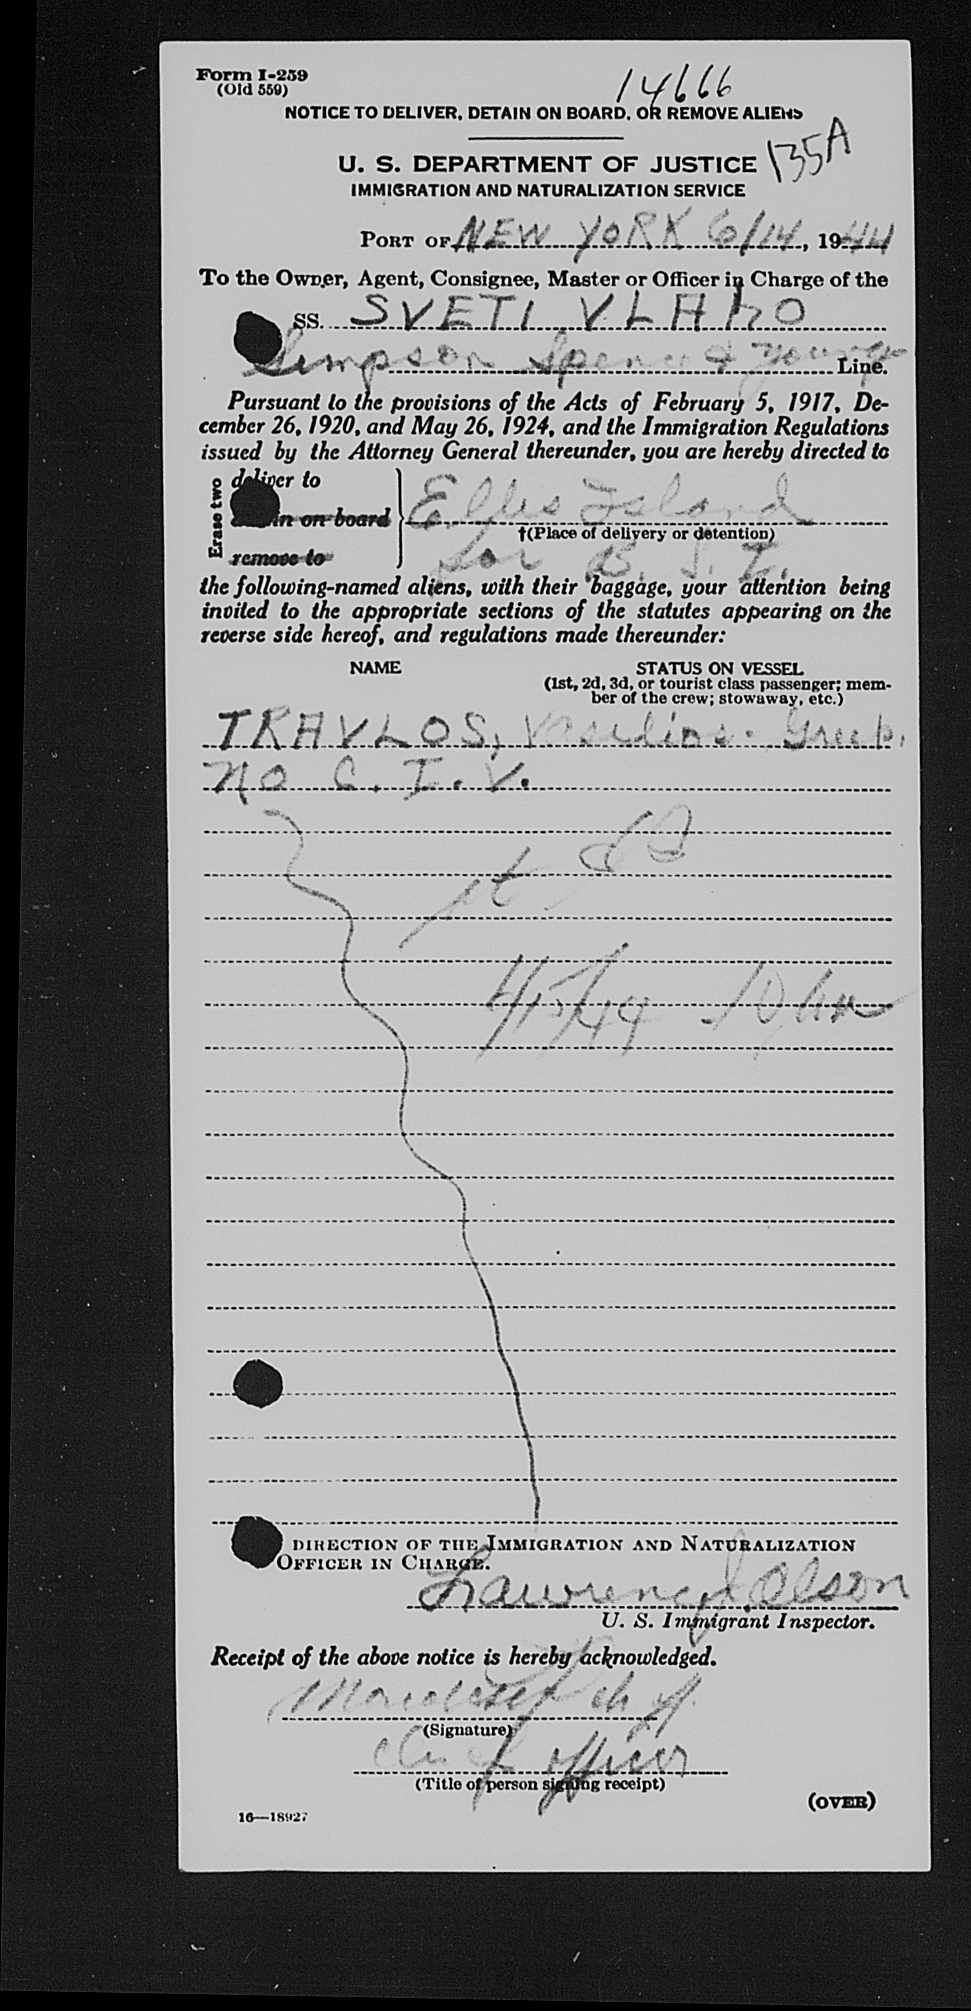 Form I-259
(Old 559)
14666
NOTICE TO DELIVER, DETAIN ON BOARD, OR REMOVE ALIENS
135A
U. S. DEPARTMENT OF JUSTICE
IMMIGRATION AND NATURALIZATION SERVICE
PORT OF NEW YORK 6/14, 1944
To the Owner, Agent, Consignee, Master or Officer in Charge of the
SS. SVETI VLAHO
Simpson Spence & Young Line.
Pursuant to the provisions of the Acts of February 5, 1917, De-
cember 26, 1920, and May 26, 1924, and the Immigration Regulations
issued by the Attorney General thereunder, you are hereby directed to
Erase two
deliver to
in on board
remove to
Ellis Island
†(Place of delivery or detention)
for B. S. I.
the following-named aliens, with their baggage, your attention being
invited to the appropriate sections of the statutes appearing on the
reverse side hereof, and regulations made thereunder:
NAME
STATUS ON VESSEL
(1st, 2d, 3d, or tourist class passenger; mem-
ber of the crew; stowaway, etc.)
TRAVLOS, Greek.
No C. I. V.
DIRECTION OF THE IMMIGRATION AND NATURALIZATION
OFFICER IN CHARGE.
Lawrence J. Olson
U. S. Immigrant Inspector.
Receipt of the above notice is hereby acknowledged.
(Signature)
Chief officer
(Title of person signing receipt)
(OVER)
16—18927